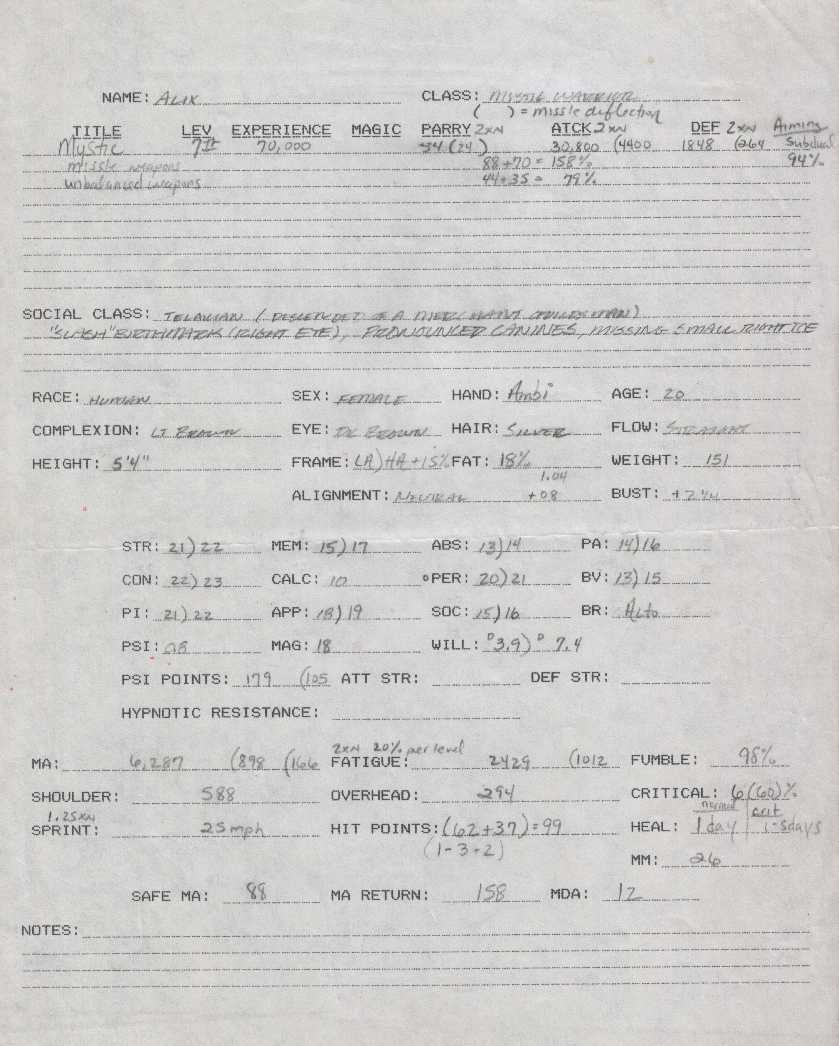 NAME: ALIX CLASS: MYSTIC WARRIOR
( ) = missle deflection
TITLE LEV EXPERIENCE MAGIC PARRY 2xN ATCK 2xN DEF 2xN Aiming
Mystic 7th 70,000 (24) 30,800 (4400 1848 (264 Subdual
missle weapons 88+70 = 158% 94%
unbalanced weapons 44+35 = 79%
SOCIAL CLASS: TELAUIAN / DESCENDED OF A MERCHANT
"SLASH" BIRTHMARK (RIGHT EYE), PRONOUNCED CANINES, MISSING SMALL RIGHT TOE
RACE: HUMAN SEX: FEMALE HAND: Ambi AGE: 20
COMPLEXION: LT BROWN EYE: DK BROWN HAIR: SILVER FLOW: STRAIGHT
HEIGHT: 5'4" FRAME: (LA) HA +15% FAT: 18% WEIGHT: 151
1.04
ALIGNMENT: NEUTRAL +08 BUST:
STR: 21) 22 MEM: 15) 17 ABS: 13) 14 PA: 14) 16
CON: 22) 23 CALC: 10 PER: 20) 21 BV: 13) 15
PI: 21) 22 APP: 18) 19 SOC: 15) 16 BR: Alto
PSI: 08 MAG: 18 WILL: 3.9) 7.4
PSI POINTS: 179 (105 ATT STR: DEF STR:
HYPNOTIC RESISTANCE:
2xN 20% per level
MA: 6,287 (898 (166 FATIGUE: 2429 (1012 FUMBLE: 98%
SHOULDER: 588 OVERHEAD: 294 CRITICAL: 6(60)%
1.25xN normal crit
SPRINT: 25 mph HIT POINTS: (62+37) = 99 HEAL: 1 day 1-5days
(1-3+2)
MM: 26
SAFE MA: 88 MA RETURN: 158 MDA: 12
NOTES: